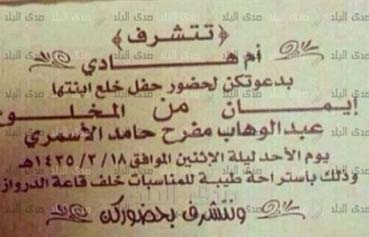 ﴿ تتشرف ﴾
أم هادي
بدعوتكن لحضور حفل خلع ابنتها
إيمان من المخلوع
عبدالوهاب مفرح حامد الأسمري
يوم الأحد ليلة الإثنين الموافق ١٤٣٥/٣/١٨هـ
وذلك باستراحة طيبة للمناسبات خلف قاعة الدرواز
ونتشرف بحضوركن
صدى البلد